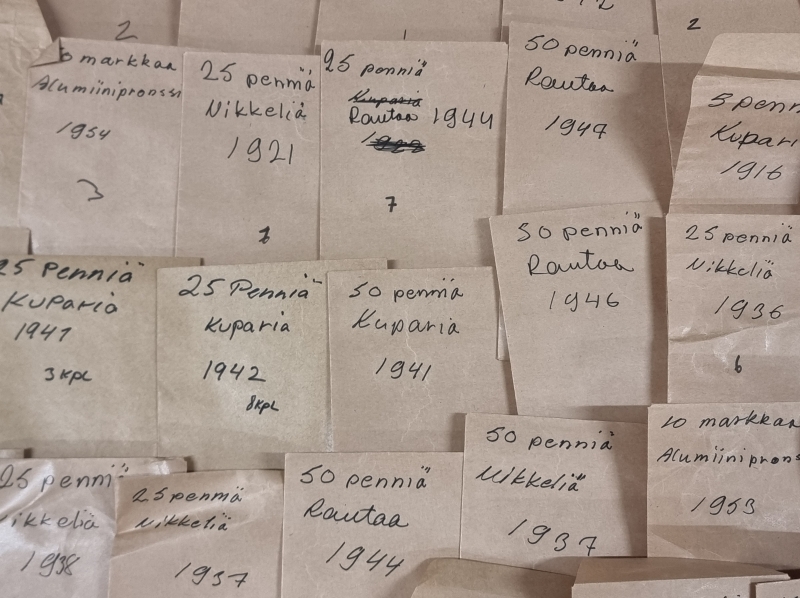 2
2
markkaa
Alumiinipronssi
1954
3
25 penniä
Nikkeliä
1921
25 penniä
Kuparia
Rautaa 1944
7
50 penniä
Rautaa
1947
5 penn
Kupari
1916
25 Penniä
Kuparia
1941
3 kpl
25 Penniä
Kuparia
1942
8kpl
50 penniä
Kuparia
1941
50 penniä
Rautaa
1946
25 penniä
Nikkeliä
1936
6
25 penni
ikkeliä
1938
25 penniä
Nikkeliä
1937
50 penniä
Rautaa
1944
50 penniä
Nikkeliä
1937
10 markkaa
Alumiinipron
1953